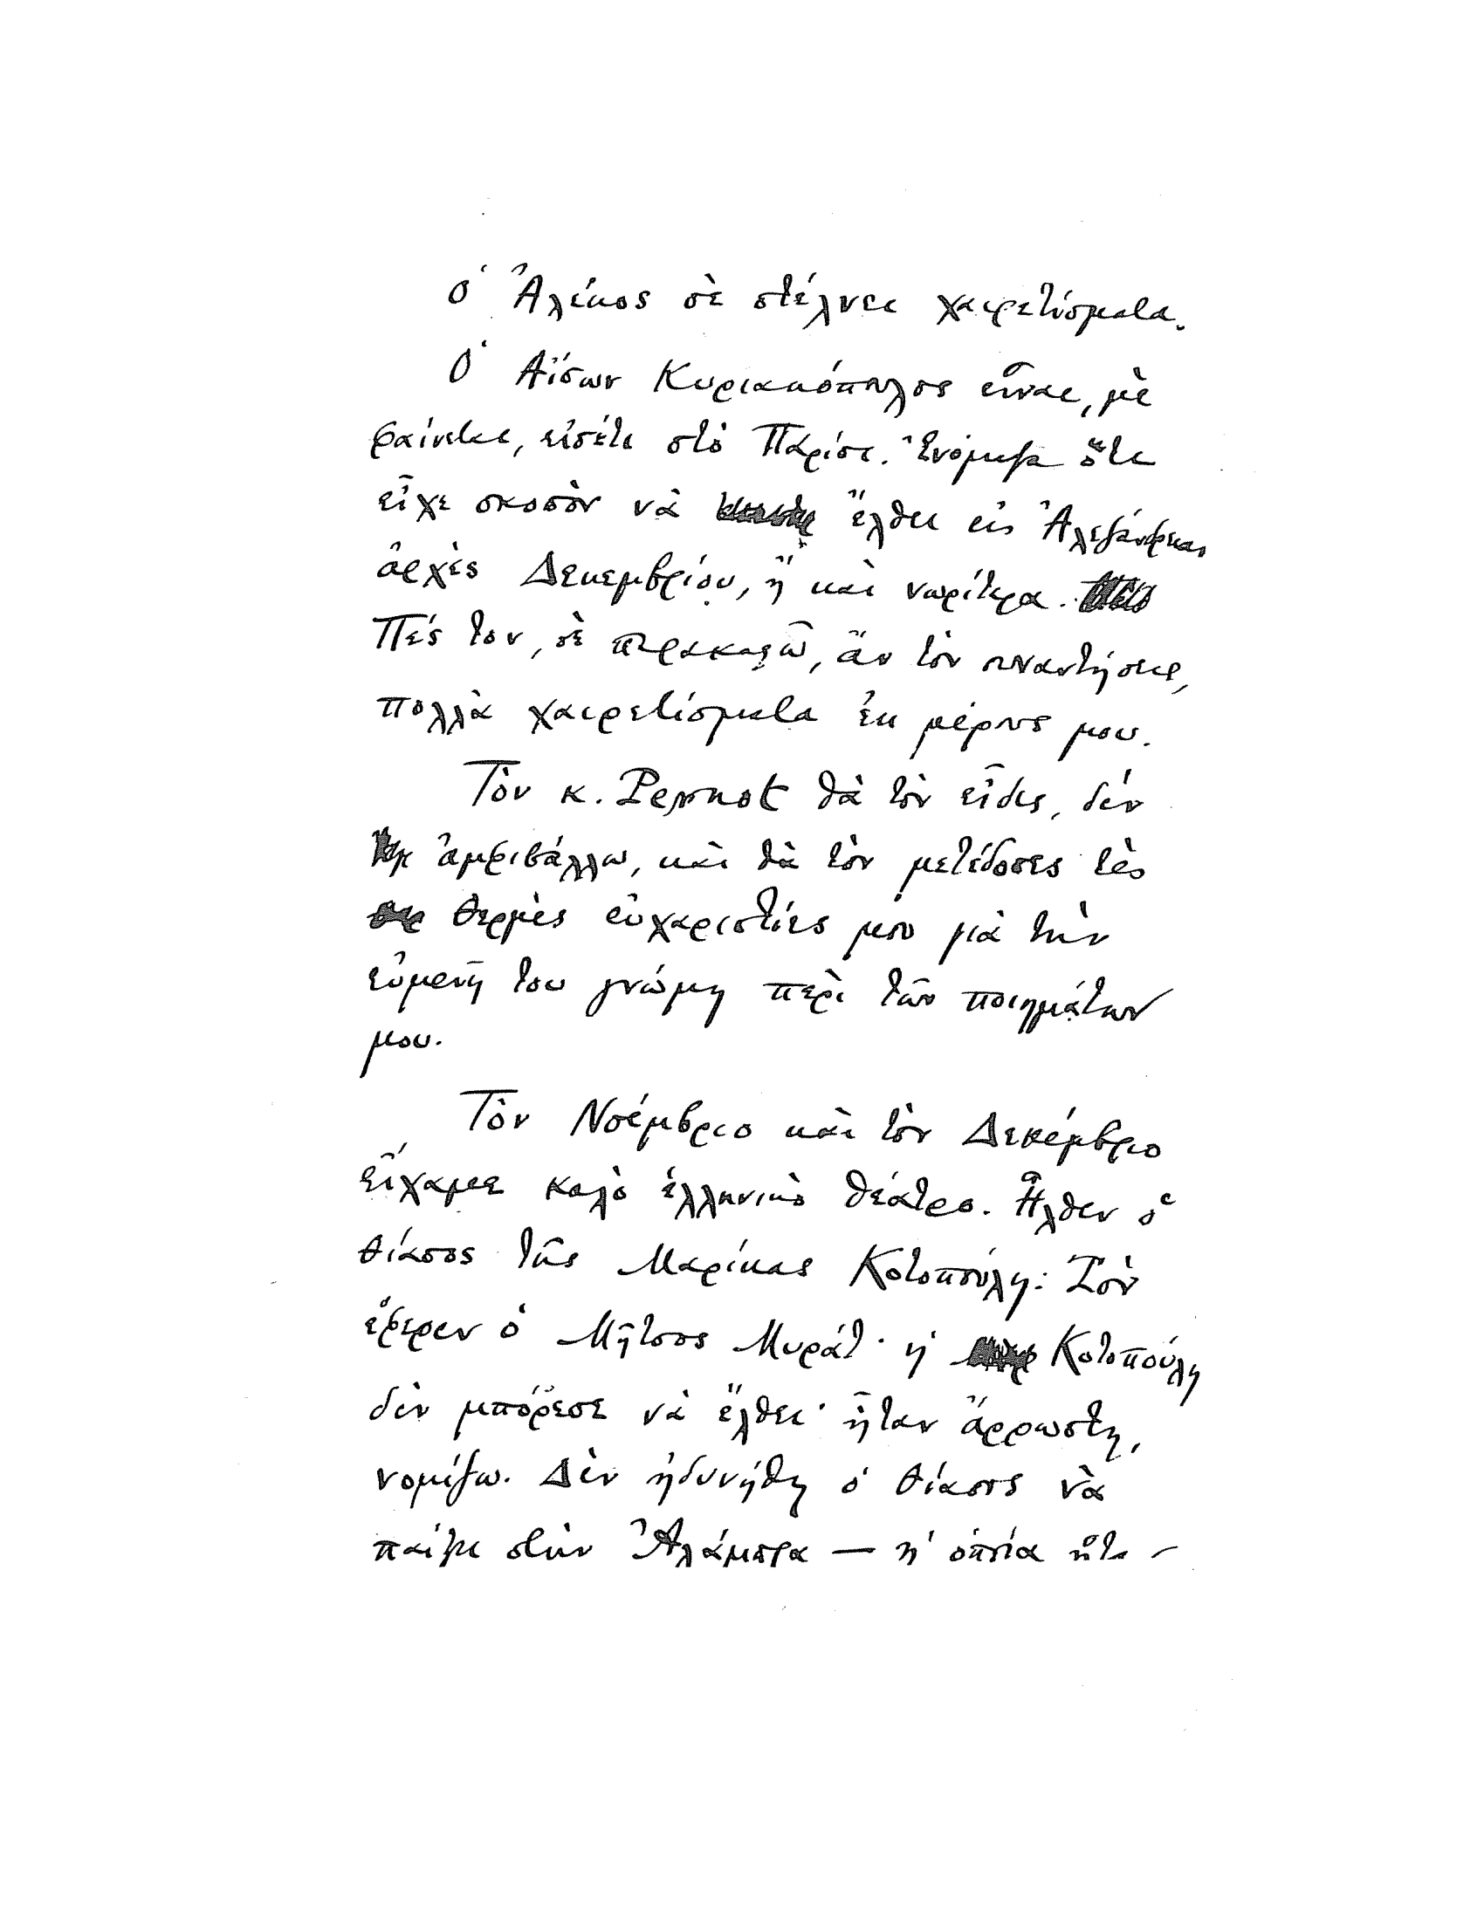 Ὁ Ἀλέκος σὲ στέλνει χαιρετίσματα.
Ὁ Αἴσων Κυριακόπουλος εἶναι, μὲ
φαίνεται, εἰσέτι στὸ Παρίσι. Ἐνόμιζα ὅτι
εἶχε σκοπὸν νὰ ἔλθει εἰς Ἀλεξάνδρειαν
ἀρχὲς Δεκεμβρίου, ἢ καὶ νωρίτερα.
Πές τον, σὲ παρακαλῶ, ἂν τὸν συναντήσεις,
πολλὰ χαιρετίσματα ἐκ μέρους μου.
Τὸν κ. Pernot θὰ τὸν εἶδες, δὲν
ἀμφιβάλλω, καὶ θὰ τὸν μετέδοσες τὲς
θερμὲς εὐχαριστίες μου γιὰ τὴν
εὐμενῆ του γνώμη περὶ τῶν ποιημάτων
μου.
Τὸν Νοέμβριο καὶ τὸν Δεκέμβριο
εἴχαμε καλὸ ἑλληνικὸ θέατρο. Ἦλθεν ὁ
θίασος τῆς Μαρίκας Κοτοπούλη: Τὸν
ἔφερεν ὁ Μῆτσος Μυράτ· ἡ Κοτοπούλη
δὲν μπόρεσε νὰ ἔλθει· ἦταν ἄρρωστη,
νομίζω. Δὲν ἠδυνήθη ὁ θίασος νὰ
παίξει στὴν Ἀλάμπρα — ἡ ὁποία ἤτα-